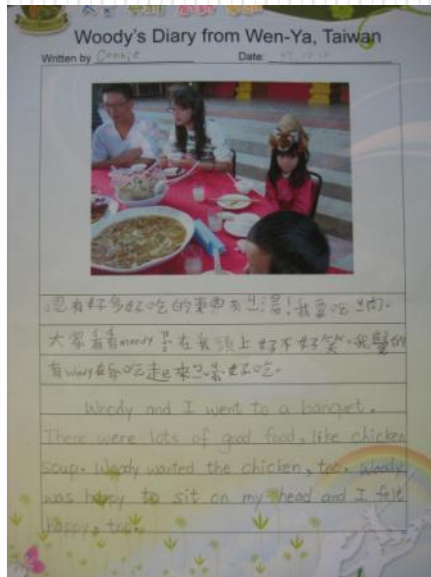 Woody's Diary from Wen-Ya, Taiwan
Written by Connie Date:
還有好多好吃的東西有ㄐㄧ湯!我要吃ㄐㄧ肉。
大家看看woody ㄗㄨㄛˋ在我頭上好不好笑。我覺的
有woody在家吃起來
好吃。
Woody and I went to a banquet.
There were lots of good food, like chicken
soup. Woody wanted the chicken, too. Woody
was happy to sit on my head and I felt
happy, too.